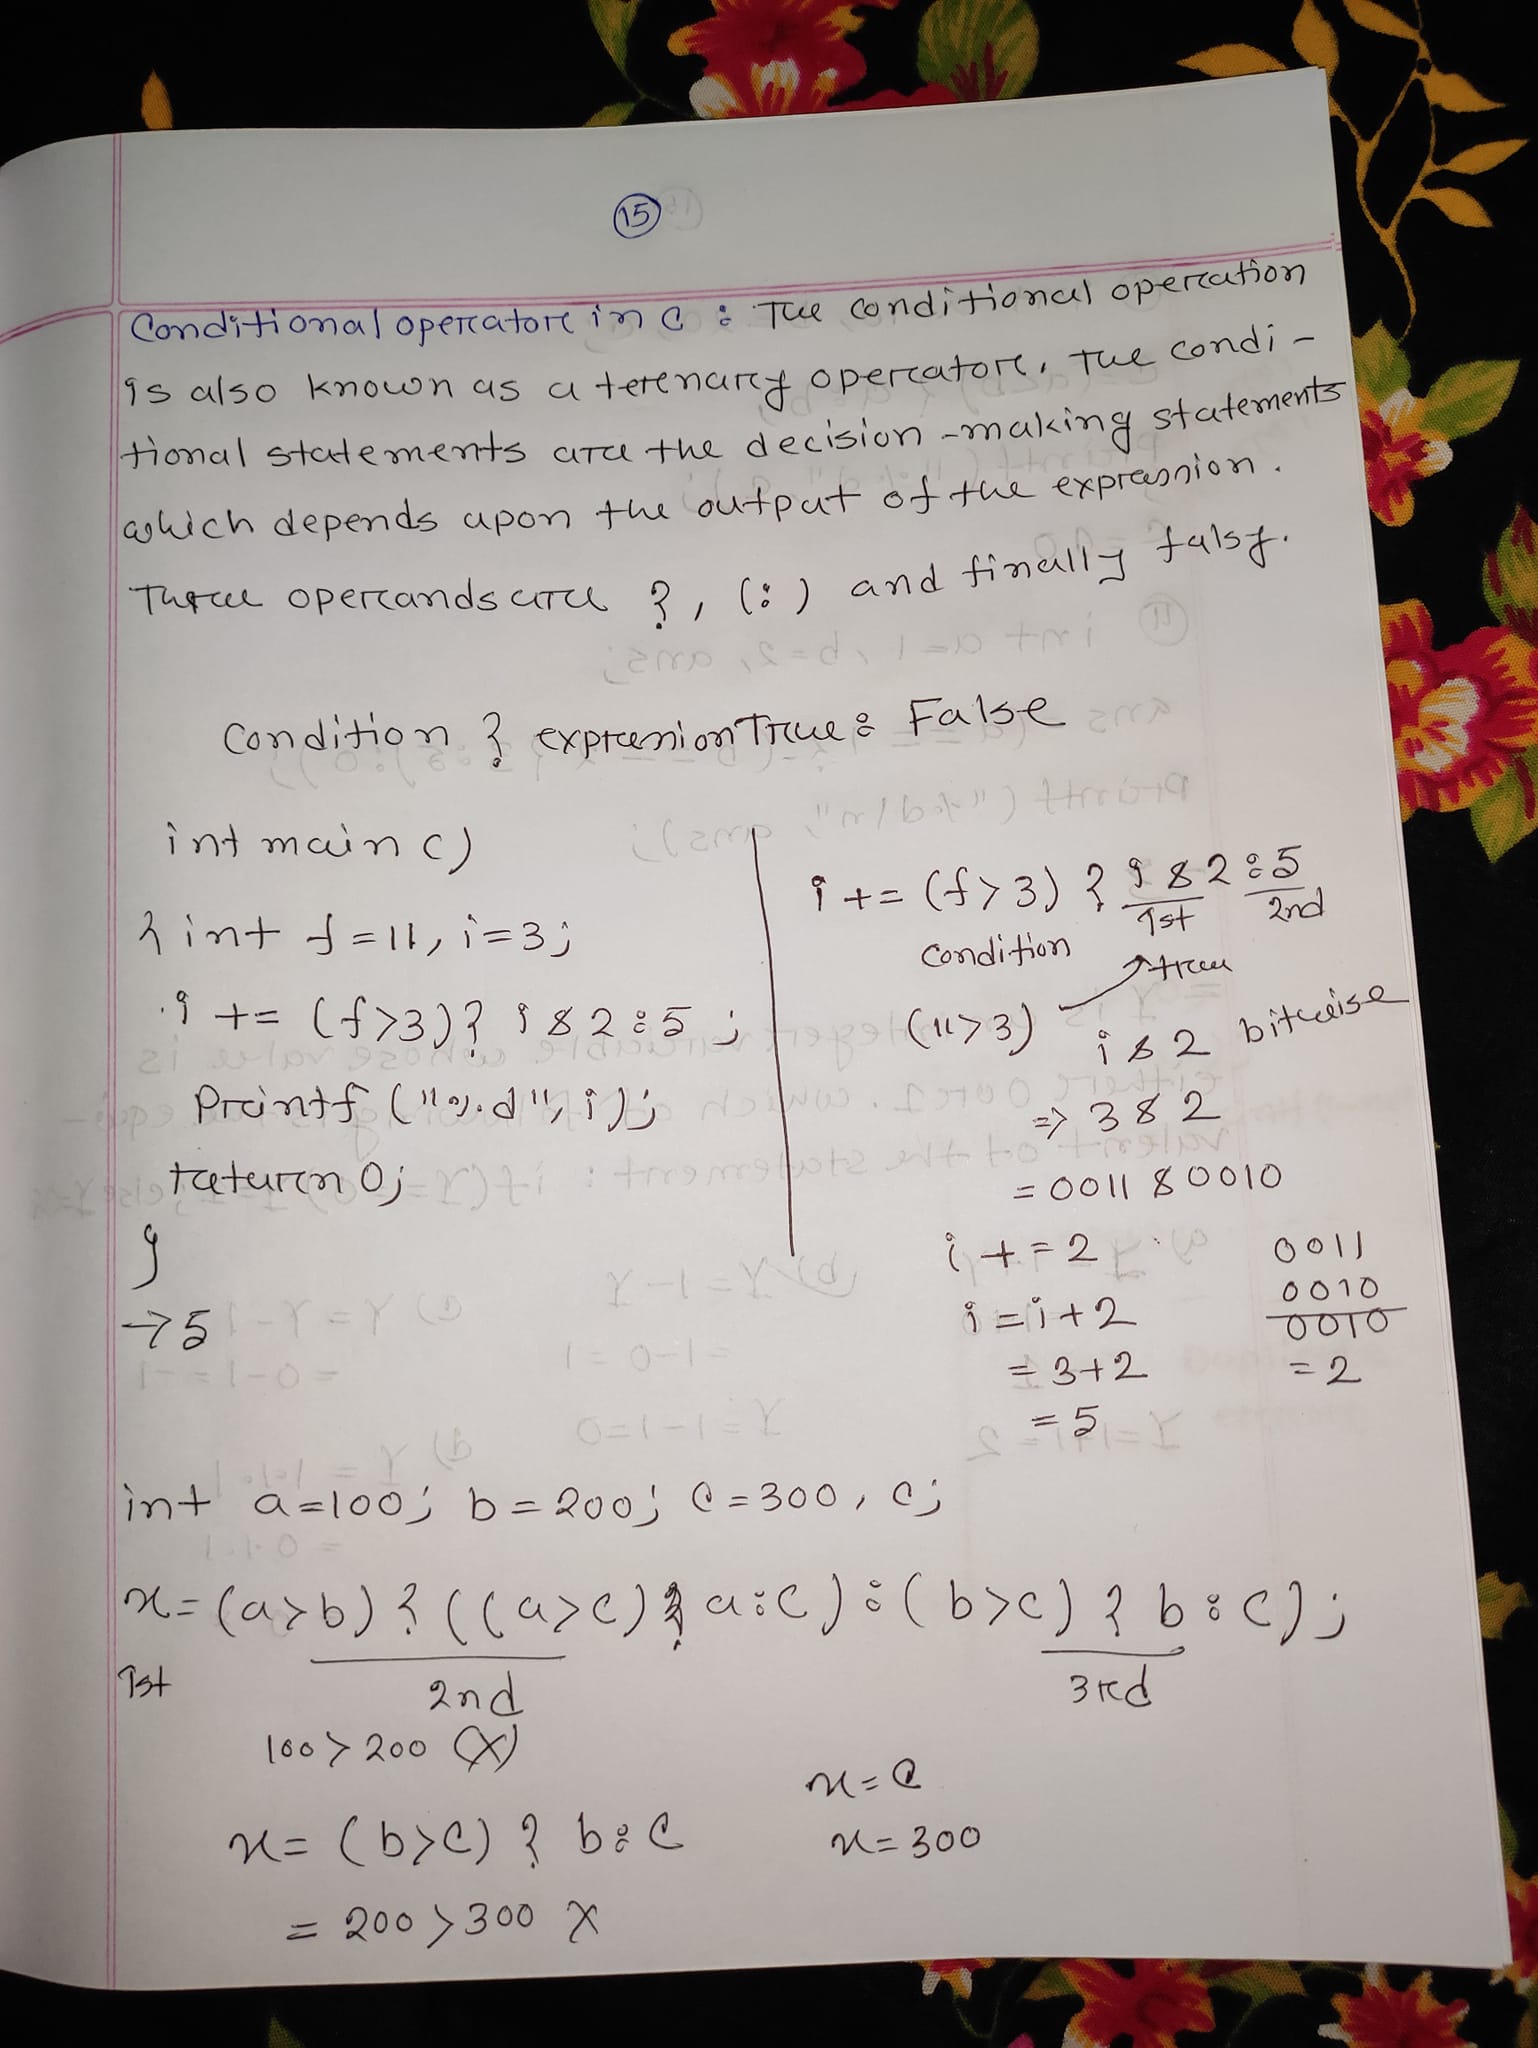 15
Conditional operator in C : The conditional operation
is also known as a ternary operator. The condi-
tional statements are the decision-making statements
which depends upon the output of the expression.
Three operands are ?, (:) and finally falsy.
Condition ? expression True : False
int main()
{ int f = 11, i = 3;
i += (f>3)? i & 2 : 5 ;
Printf ("%d", i);
return 0;
}
→ 5
i += (f>3) ? i & 2 : 5
1st 2nd
Condition
true
(11>3)
i & 2 bitwise
=> 3 & 2
= 0011 & 0010
i += 2
i = i + 2
= 3+2
= 5
0011
0010
0010
= 2
int a=100; b = 200; c = 300, c;
x = (a>b) ? ((a>c) ? a:c) : (b>c) ? b : c);
1st 2nd 3rd
100 > 200 (X)
x = (b>c) ? b : c
= 200 > 300 X
x = c
x = 300